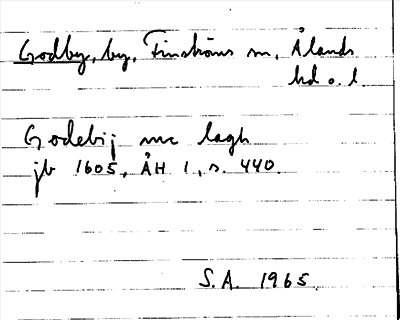 Godby, by, Finströms sn, Ålands
hd o. l.
Godebij me lagh
jb 1605, ÅH 1, s. 440.
S.A. 1965.